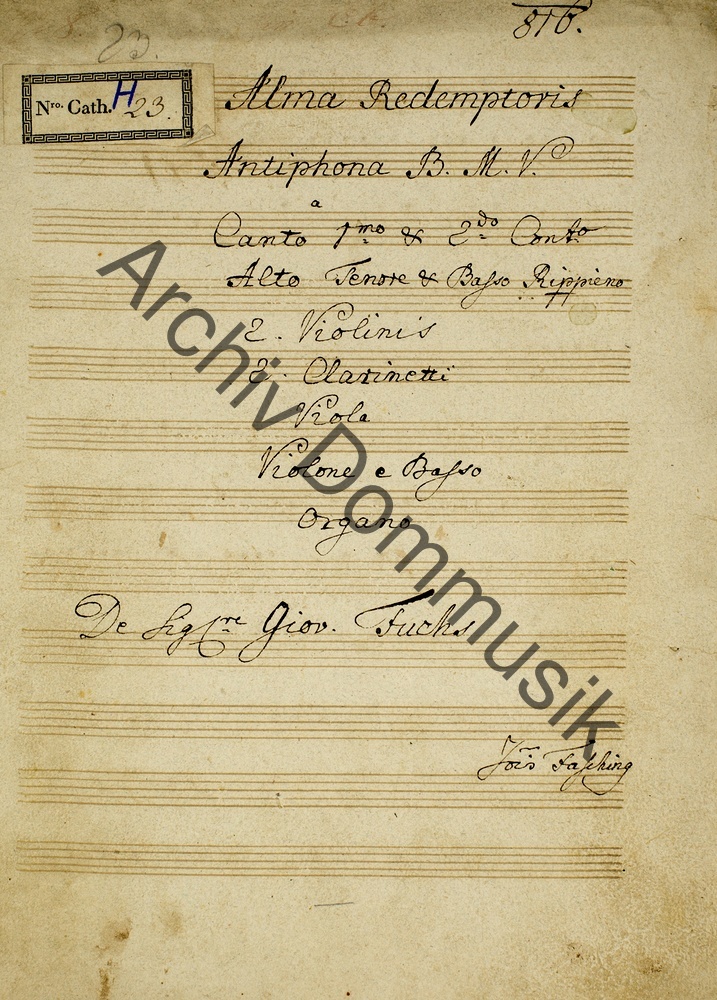 816.
23.
Nro. Cath. H 23.
Alma Redemptoris
Antiphona B. M. V.
a
Canto 1mo & 2do Conto
Alto Tenore & Basso Rippieno
2. Violinis
2. Clarinetti
Viola
Violone e Basso
Organo
De Sigre Giov. Fuchs
Jois Fasching
Archiv Dommusik